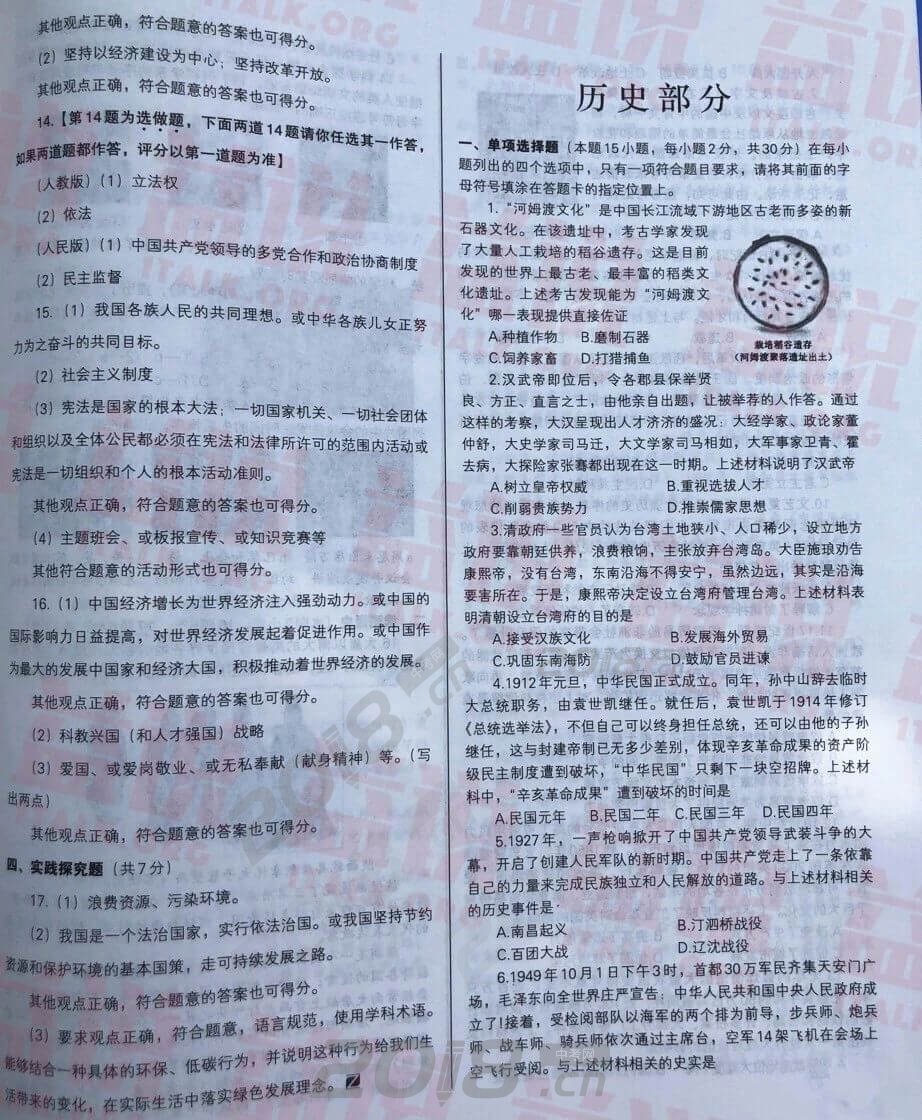 其他观点正确，符合题意的答案也可得分。
(2) 坚持以经济建设为中心；坚持改革开放。
其他观点正确，符合题意的答案也可得分。
14.【第14题为选做题，下面两道14题请你任选其一作答，
如果两道题都作答，评分以第一道题为准】
(人教版)(1) 立法权
(2) 依法
(人民版)(1) 中国共产党领导的多党合作和政治协商制度
(2) 民主监督
15.(1) 我国各族人民的共同理想。或中华各族儿女正努
力为之奋斗的共同目标。
(2) 社会主义制度
(3) 宪法是国家的根本大法；一切国家机关、一切社会团体
和组织以及全体公民都必须在宪法和法律所许可的范围内活动或
宪法是一切组织和个人的根本活动准则。
其他观点正确，符合题意的答案也可得分。
(4) 主题班会、或板报宣传、或知识竞赛等
其他符合题意的活动形式也可得分。
16.(1) 中国经济增长为世界经济注入强劲动力。或中国的
国际影响力日益提高，对世界经济发展起着促进作用。或中国作
为最大的发展中国家和经济大国，积极推动着世界经济的发展。
其他观点正确，符合题意的答案也可得分。
(2) 科教兴国（和人才强国）战略
(3) 爱国、或爱岗敬业、或无私奉献（献身精神）等。(写
出两点)
其他观点正确，符合题意的答案也可得分。
四、实践探究题（共7分）
17.(1) 浪费资源、污染环境。
(2) 我国是一个法治国家，实行依法治国。或我国坚持节约
资源和保护环境的基本国策，走可持续发展之路。
其他观点正确，符合题意的答案也可得分。
(3) 要求观点正确，符合题意，语言规范，使用学科术语。
能够结合一种具体的环保、低碳行为，并说明这种行为给我们生
活带来的变化，在实际生活中落实绿色发展理念。
历史部分
一、单项选择题（本题15小题，每小题2分，共30分）在每小
题列出的四个选项中，只有一项符合题目要求，请将其前面的字
母符号填涂在答题卡的指定位置上。
1.“河姆渡文化”是中国长江流域下游地区古老而多姿的新
石器文化。在该遗址中，考古学家发现
了大量人工栽培的稻谷遗存。这是目前
发现的世界上最古老、最丰富的稻类文
化遗址。上述考古发现能为“河姆渡文
化”哪一表现提供直接佐证
A.种植作物 B.磨制石器
C.饲养家畜 D.打猎捕鱼
栽培稻谷遗存
（河姆渡聚落遗址出土）
2.汉武帝即位后，令各郡县保举贤
良、方正、直言之士，由他亲自出题，让被举荐的人作答。通过
这样的考察，大汉呈现出人才济济的盛况：大经学家、政论家董
仲舒，大史学家司马迁，大文学家司马相如，大军事家卫青、霍
去病，大探险家张骞都出现在这一时期。上述材料说明了汉武帝
A.树立皇帝权威 B.重视选拔人才
C.削弱贵族势力 D.推崇儒家思想
3.清政府一些官员认为台湾土地狭小、人口稀少，设立地方
政府要靠朝廷供养，浪费粮饷，主张放弃台湾岛。大臣施琅劝告
康熙帝，没有台湾，东南沿海不得安宁，虽然边远，其实是沿海
要害所在。于是，康熙帝决定设立台湾府管理台湾。上述材料表
明清朝设立台湾府的目的是
A.接受汉族文化 B.发展海外贸易
C.巩固东南海防 D.鼓励官员进谏
4.1912年元旦，中华民国正式成立。同年，孙中山辞去临时
大总统职务，由袁世凯继任。就任后，袁世凯于1914年修订
《总统选举法》，不但自己可以终身担任总统，还可以由他的子孙
继任，这与封建帝制已无多少差别，体现辛亥革命成果的资产阶
级民主制度遭到破坏，“中华民国”只剩下一块空招牌。上述材
料中，“辛亥革命成果”遭到破坏的时间是
A.民国元年 B.民国二年 C.民国三年 D.民国四年
5.1927年，一声枪响掀开了中国共产党领导武装斗争的大
幕，开启了创建人民军队的新时期。中国共产党走上了一条依靠
自己的力量来完成民族独立和人民解放的道路。与上述材料相关
的历史事件是
A.南昌起义 B.汀泗桥战役
C.百团大战 D.辽沈战役
6.1949年10月1日下午3时，首都30万军民齐集天安门广
场，毛泽东向全世界庄严宣告：中华人民共和国中央人民政府成
立了!接着，受检阅部队以海军的两个排为前导，步兵师、炮兵
师、战车师、骑兵师依次通过主席台，空军14架飞机在会场上
空飞行受阅。与上述材料相关的史实是
2018 中考网 .cn